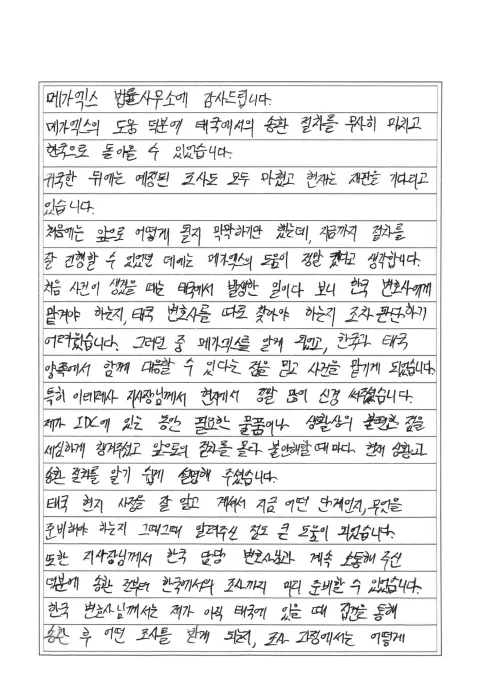 메가엑스 법률사무소에 감사드립니다.
메가엑스의 도움 덕분에 태국에서의 송환 절차를 무사히 마치고
한국으로 돌아올 수 있었습니다.
귀국한 뒤에는 예정된 조사도 모두 마쳤고 현재는 재판을 기다리고
있습니다.
처음에는 앞으로 어떻게 될지 막막하기만 했는데, 지금까지 절차를
잘 진행할 수 있었던 데에는 메가엑스의 도움이 정말 컸다고 생각합니다.
처음 사건이 생겼을 때는 태국에서 발생한 일이다 보니 한국 변호사에게
맡겨야 하는지, 태국 변호사를 따로 찾아야 하는지 조차 판단하기
어려웠습니다. 그러던 중 메가엑스를 알게 되었고, 한국과 태국
양쪽에서 함께 대응할 수 있다는 점을 믿고 사건을 맡기게 되었습니다.
특히 이테레사 지사장님께서 현지에서 정말 많이 신경 써주셨습니다.
제가 IDC에 있는 동안 필요한 물품이나 생활상의 불편한 점을
세심하게 챙겨주셨고 앞으로의 절차를 몰라 불안해할 때마다 현재 상황과
송환 절차를 알기 쉽게 설명해 주셨습니다.
태국 현지 사정을 잘 알고 계셔서 지금 어떤 단계인지, 무엇을
준비해야 하는지 그때그때 알려주신 점도 큰 도움이 되었습니다.
또한 지사장님께서 한국 담당 변호사님과 계속 소통해 주신
덕분에 송환 전부터 한국에서의 조사까지 미리 준비할 수 있었습니다.
한국 변호사님께서는 제가 아직 태국에 있을 때 접견을 통해
송환 후 어떤 조사를 받게 되는지, 조사 과정에서는 어떻게